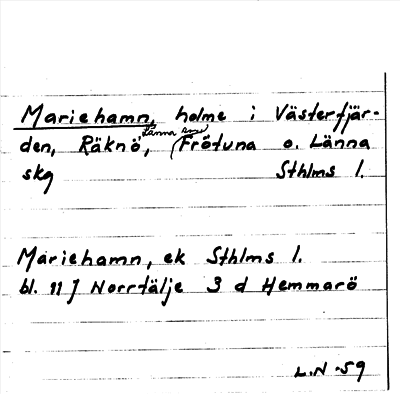 Mariehamn, holme i Västerfjär-
den, Räknö, Länna sn (Frötuna o. Länna
skg Sthlms l.
Mariehamn, ek Sthlms l.
bl. 11 J Norrtälje 3 d Hemmarö
L.N -59